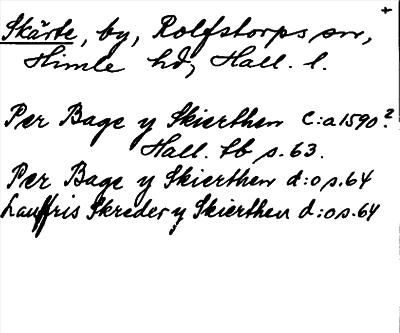 Skärte, by, Rolfstorps sn, +
Himle hd, Hall. l.
Per Bage y Skierthen C:a 1590?
Hall. tb s. 63.
Per Bage y Skierthen d:o s. 64
Lauffris Skreder y Skierthen d:o s. 64